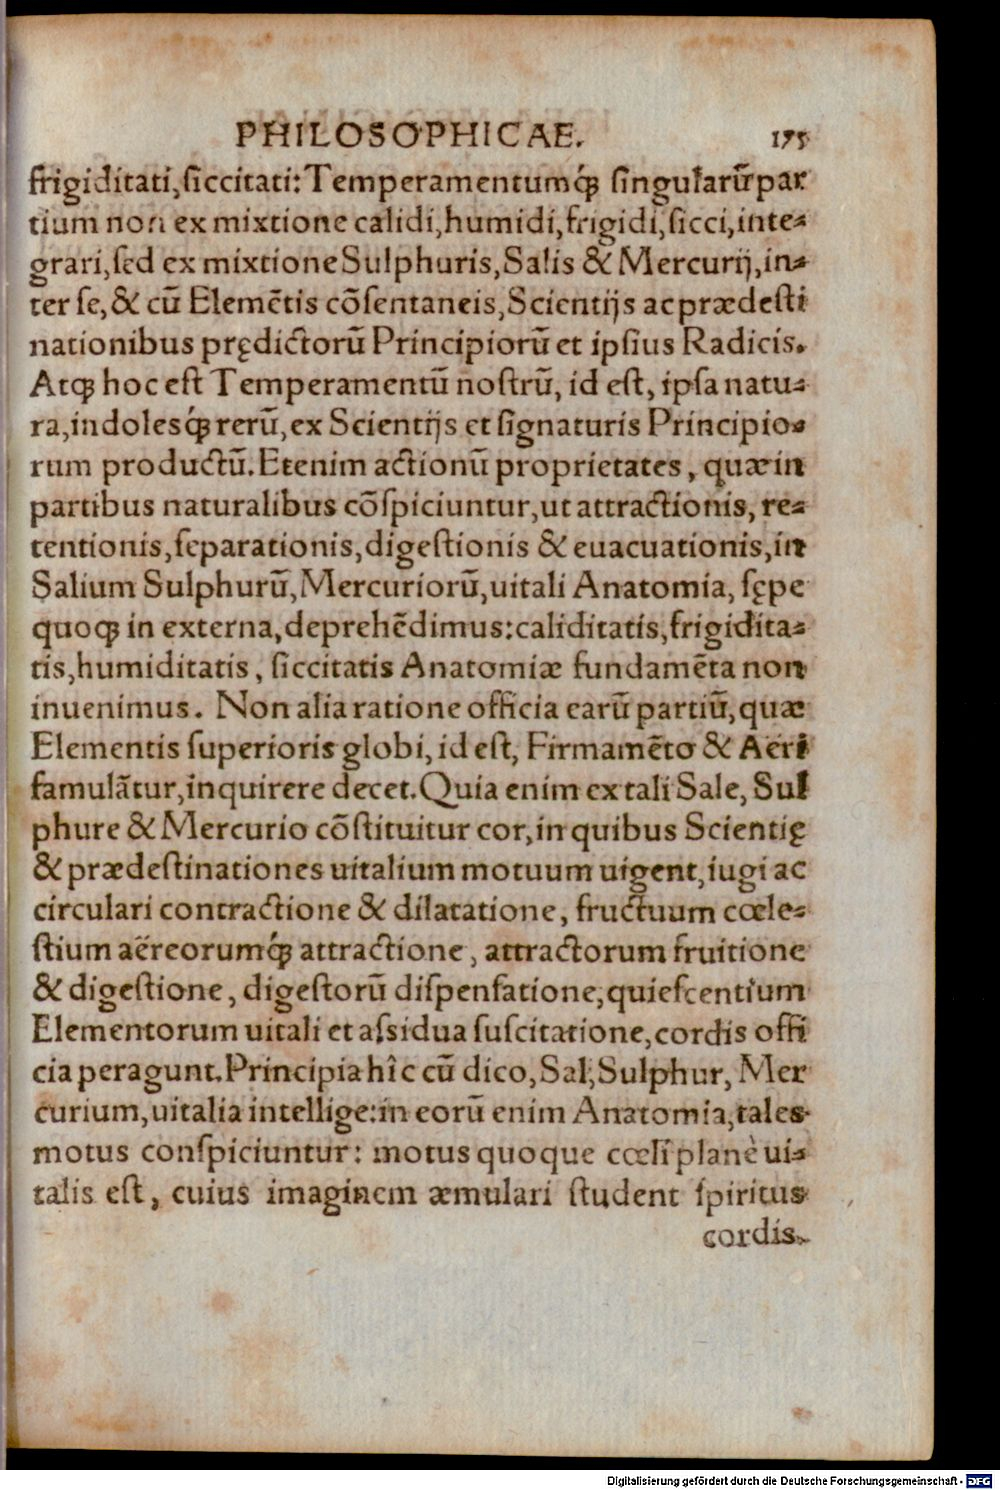 PHILOSOPHICAE. 175
frigiditati, ſiccitati: Temperamentumq́ꝫ ſingularũ par
tium non ex mixtione calidi, humidi, frigidi, ſicci, inte-
grari, ſed ex mixtione Sulphuris, Salis & Mercurij, in-
ter ſe, & cũ Elemẽtis cõſentaneis, Scientijs ac prædeſti
nationibus prędictorũ Principiorũ et ipſius Radicis.
Atqꝫ hoc eſt Temperamentũ noſtrũ, id eſt, ipſa natu-
ra, indolesq́ꝫ rerũ, ex Scientijs et ſignaturis Principio-
rum productũ. Etenim actionũ proprietates, quæ in
partibus naturalibus cõſpiciuntur, ut attractionis, re-
tentionis, ſeparationis, digeſtionis & euacuationis, in
Salium Sulphurũ, Mercuriorũ, uitali Anatomia, ſępe
quoqꝫ in externa, deprehẽdimus: caliditatis, frigidita-
tis, humiditatis, ſiccitatis Anatomiæ fundamẽta non
inuenimus. Non alia ratione officia earũ partiũ, quæ
Elementis ſuperioris globi, id eſt, Firmamẽto & Aëri
famulãtur, inquirere decet. Quia enim ex tali Sale, Sul
phure & Mercurio cõſtituitur cor, in quibus Scientię
& prædeſtinationes uitalium motuum uigent, iugi ac
circulari contractione & dilatatione, fructuum cœle-
ſtium aëreorumq́ꝫ attractione, attractorum fruitione
& digeſtione, digeſtorũ diſpenſatione, quieſcentium
Elementorum uitali et aſsidua ſuſcitatione, cordis offi
cia peragunt. Principia hîc cũ dico, Sal, Sulphur, Mer
curium, uitalia intellige: in eorũ enim Anatomia, tales
motus conſpiciuntur: motus quoque cœli planè ui-
talis eſt, cuius imaginem æmulari ſtudent ſpiritus
cordis.
Digitalisierung gefördert durch die Deutsche Forschungsgemeinschaft - DFG